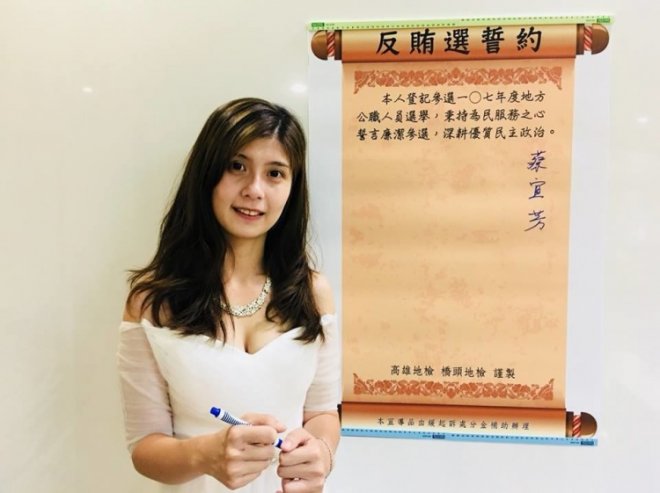 反賄選誓約
本人登記參選一〇七年度地方
公職人員選舉，秉持為民服務之心
誓言廉潔參選，深耕優質民主政治。
蔡宜芳
高雄地檢 橋頭地檢 謹製
本宣導品由緩起訴處分金補助辦理